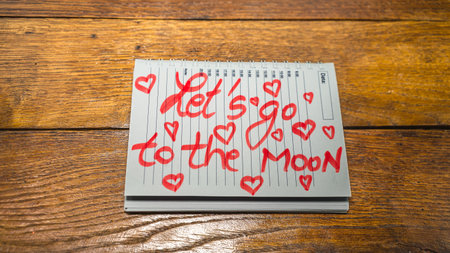 Let's go
to the MOON